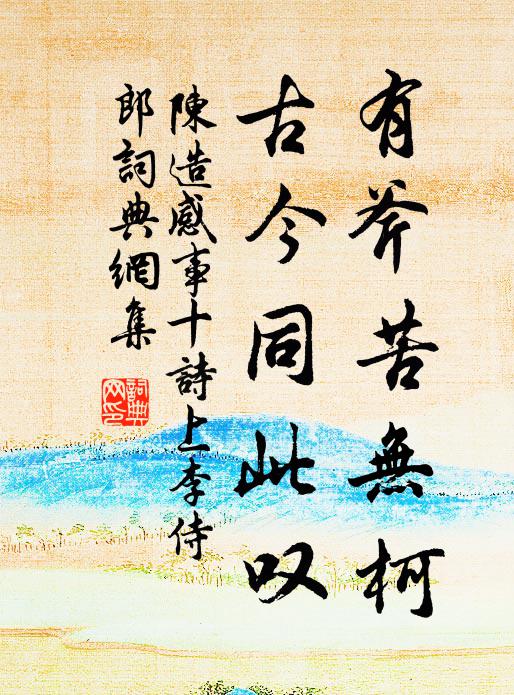 有斧苦無柯
古今同此叹
陳造感事十詩上李侍
郎詞典網集
詞典
网印